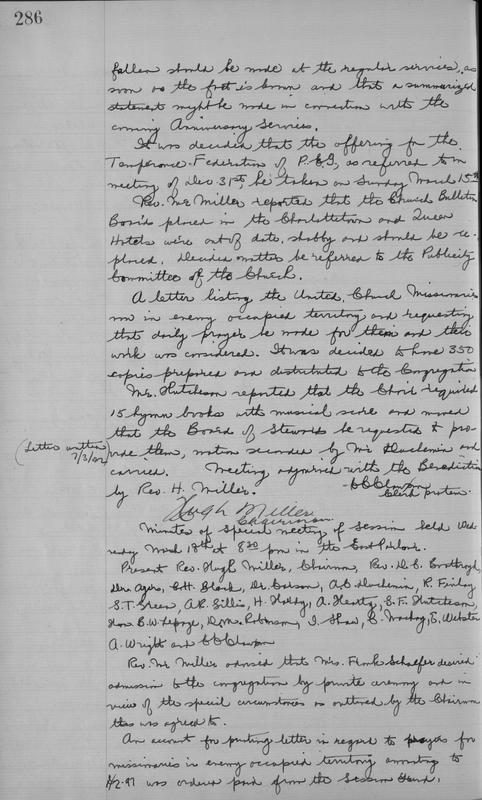 286
fallen should be made at the regular services, as
soon as the fact is known and that a summarized
statement might be made in connection with the
coming Anniversary Services.
It was decided that the offering for the
Temperance Federation of P.E.I, as referred to in
meeting of Dec 31st, be taken on Sunday March 15th
Rev. Mr Miller reported that the Church Bulletin
Boards placed in the Charlottetown and Queen
Hotels were out of date, shabby and should be re-
placed. Decided matter be referred to the Publicity
Committee of the Church.
A letter listing the United Church Missionaries
now in enemy occupied territory and requesting
that daily prayer be made for them and their
work was considered. It was decided to have 350
copies prepared and distributed to the Congregation
Mr. Hutcheson reported that the Choir required
15 hymn books with musical score and moved
that the Board of Stewards be requested to pro-
(Letter written
7/3/42)
vide them, motion seconded by Mr Duchemin and
carried. Meeting adjourned with the Benediction
by Rev. H. Miller.
Clerk protem.
Hugh Miller
Chairman
Minutes of Special meeting of Session held Wed-
nesday March 18th at 8 30 pm in the East Parlour.
Present Rev. Hugh Miller, Chairman, Rev. D. C.
Agers, C.H. Black, Dr. Carson, A.C. Duchemin, R. Finlay,
S.T. Green, A.R. Gillis, H. Hardy, A. Hearty, S.F. Hutcheson,
Hon. B.W. Lepage, Robinson, I. Shaw, E. Webster
A. Wright and
Rev. Mr Miller advised that Mrs. Frank Schaefer desired
admission to the congregation by private ceremony and in
view of the special circumstances as outlined by the Chairman
this was agreed to.
An account for printing letter in regard to prayers for
missionaries in enemy occupied territory amounting to
was ordered paid from the Session Fund.